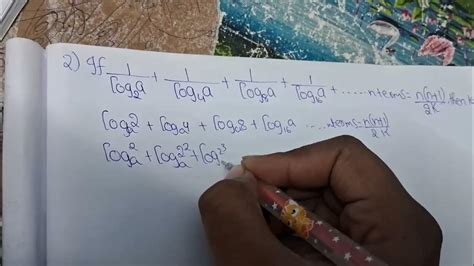 2) If 1/log₂a + 1/log₄a + 1/log₈a + 1/log₁₆a + ...... n terms = n(n+1)/2k, then
logₐ2 + logₐ4 + logₐ8 + log₁₆a ..... n terms = n(n+1)/2k
logₐ2 + logₐ2² + log 2³